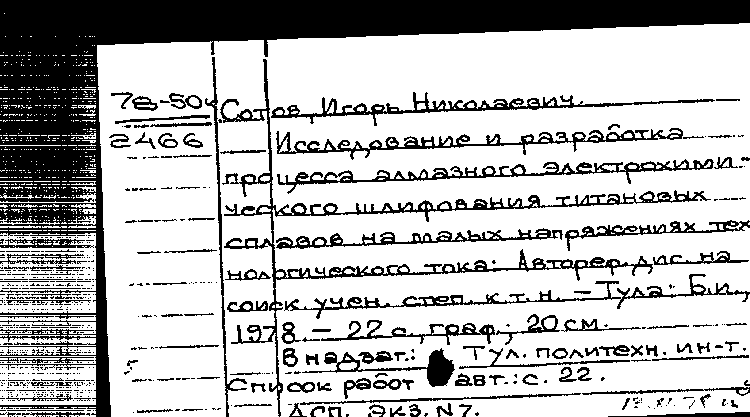 78-50 Сотов, Игорь Николаевич.
2466 Исследование и разработка
процесса алмазного электрохими-
ческого шлифования титановых
сплавов на малых напряжениях тех
нологического тока: Автореф. дис. на
соиск. учен. степ. к. т. н. – Тула: Б.и.,
1978. – 22 с., граф.; 20 см.
В надзаг.: Тул. политехн. ин-т.
Список работ авт.: с. 22.
Дсп. Экз. N7.